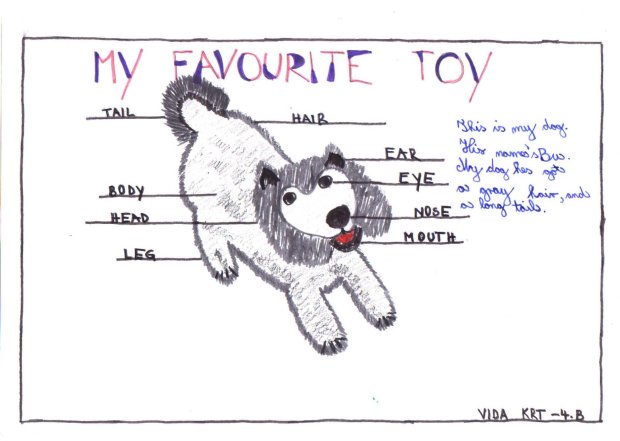 MY FAVOURITE TOY
TAIL
HAIR
EAR
EYE
BODY
HEAD
NOSE
MOUTH
LEG
This is my dog.
His name's Bus.
My dog hes got
a gray hair, and
a long tails.
VIDA KRT - 4.B